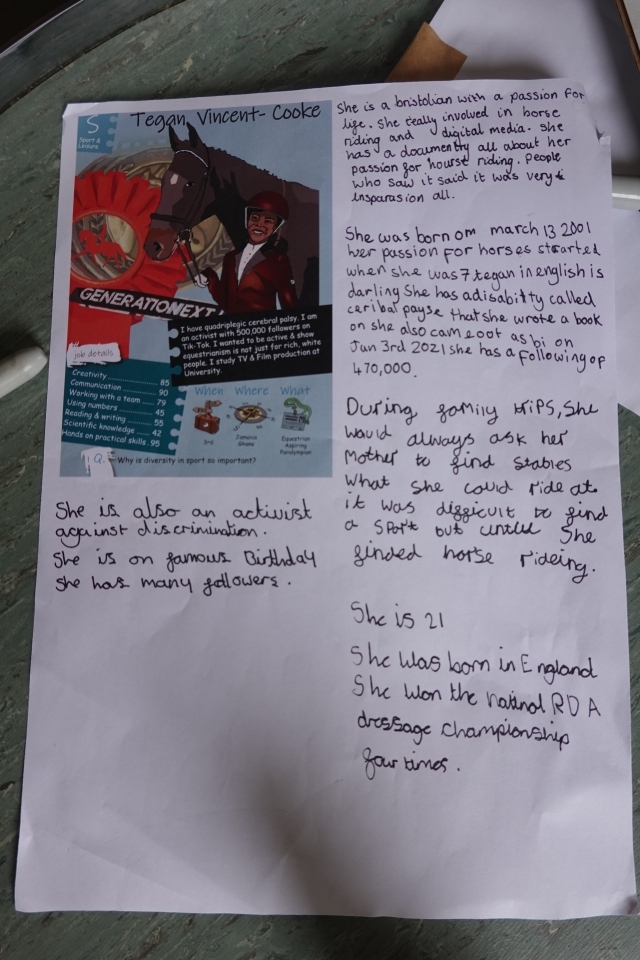 Tegan Vincent-Cooke
S
Sport &
Leisure
GENERATIONEXT
I have quadriplegic cerebral palsy. I am
an activist with 500,000 followers on
Tik-Tok. I wanted to be active & show
equestrianism is not just for rich, white
people. I study TV & Film production at
University.
job details
Creativity 85
Communication 90
Working with a team 79
Using numbers 45
Reading & writing 55
Scientific knowledge 42
Hands on practical skills 95
When Where What
3rd
Jamaica
Ghana
Equestrian
Aspiring
Paralympian
Q. Why is diversity in sport so important?
She is also an activist
against discrimination.
She is on famous Birthday
she has many followers.
She is a bristolian with a passion for
life. She really involved in horse
riding and digital media. She
has a documenty all about her
passion for hourse riding. People
who saw it said it was very
insparasion all.
She was born om march 13 2001
her passion for horses starrted
when she was 7 tegan in english is
darling She has a disabilty called
ceribal payse that she wrote a book
on she also cam eoot as bi on
Jan 3rd 2021 she has a following of
470,000.
During family trips, She
would always ask her
Mother to find stables
what she could ride at
it was difficult to find
a sport but until She
finded horse rideing.
She is 21
She was born in England
She won the natinal RDA
dressage championship
four times.